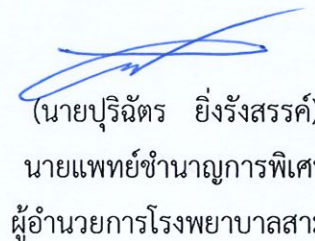 (นายปุริฉัตร ยิ่งรังสรรค์)
นายแพทย์ชำนาญการพิเศ
ผู้อำนวยการโรงพยาบาลสา